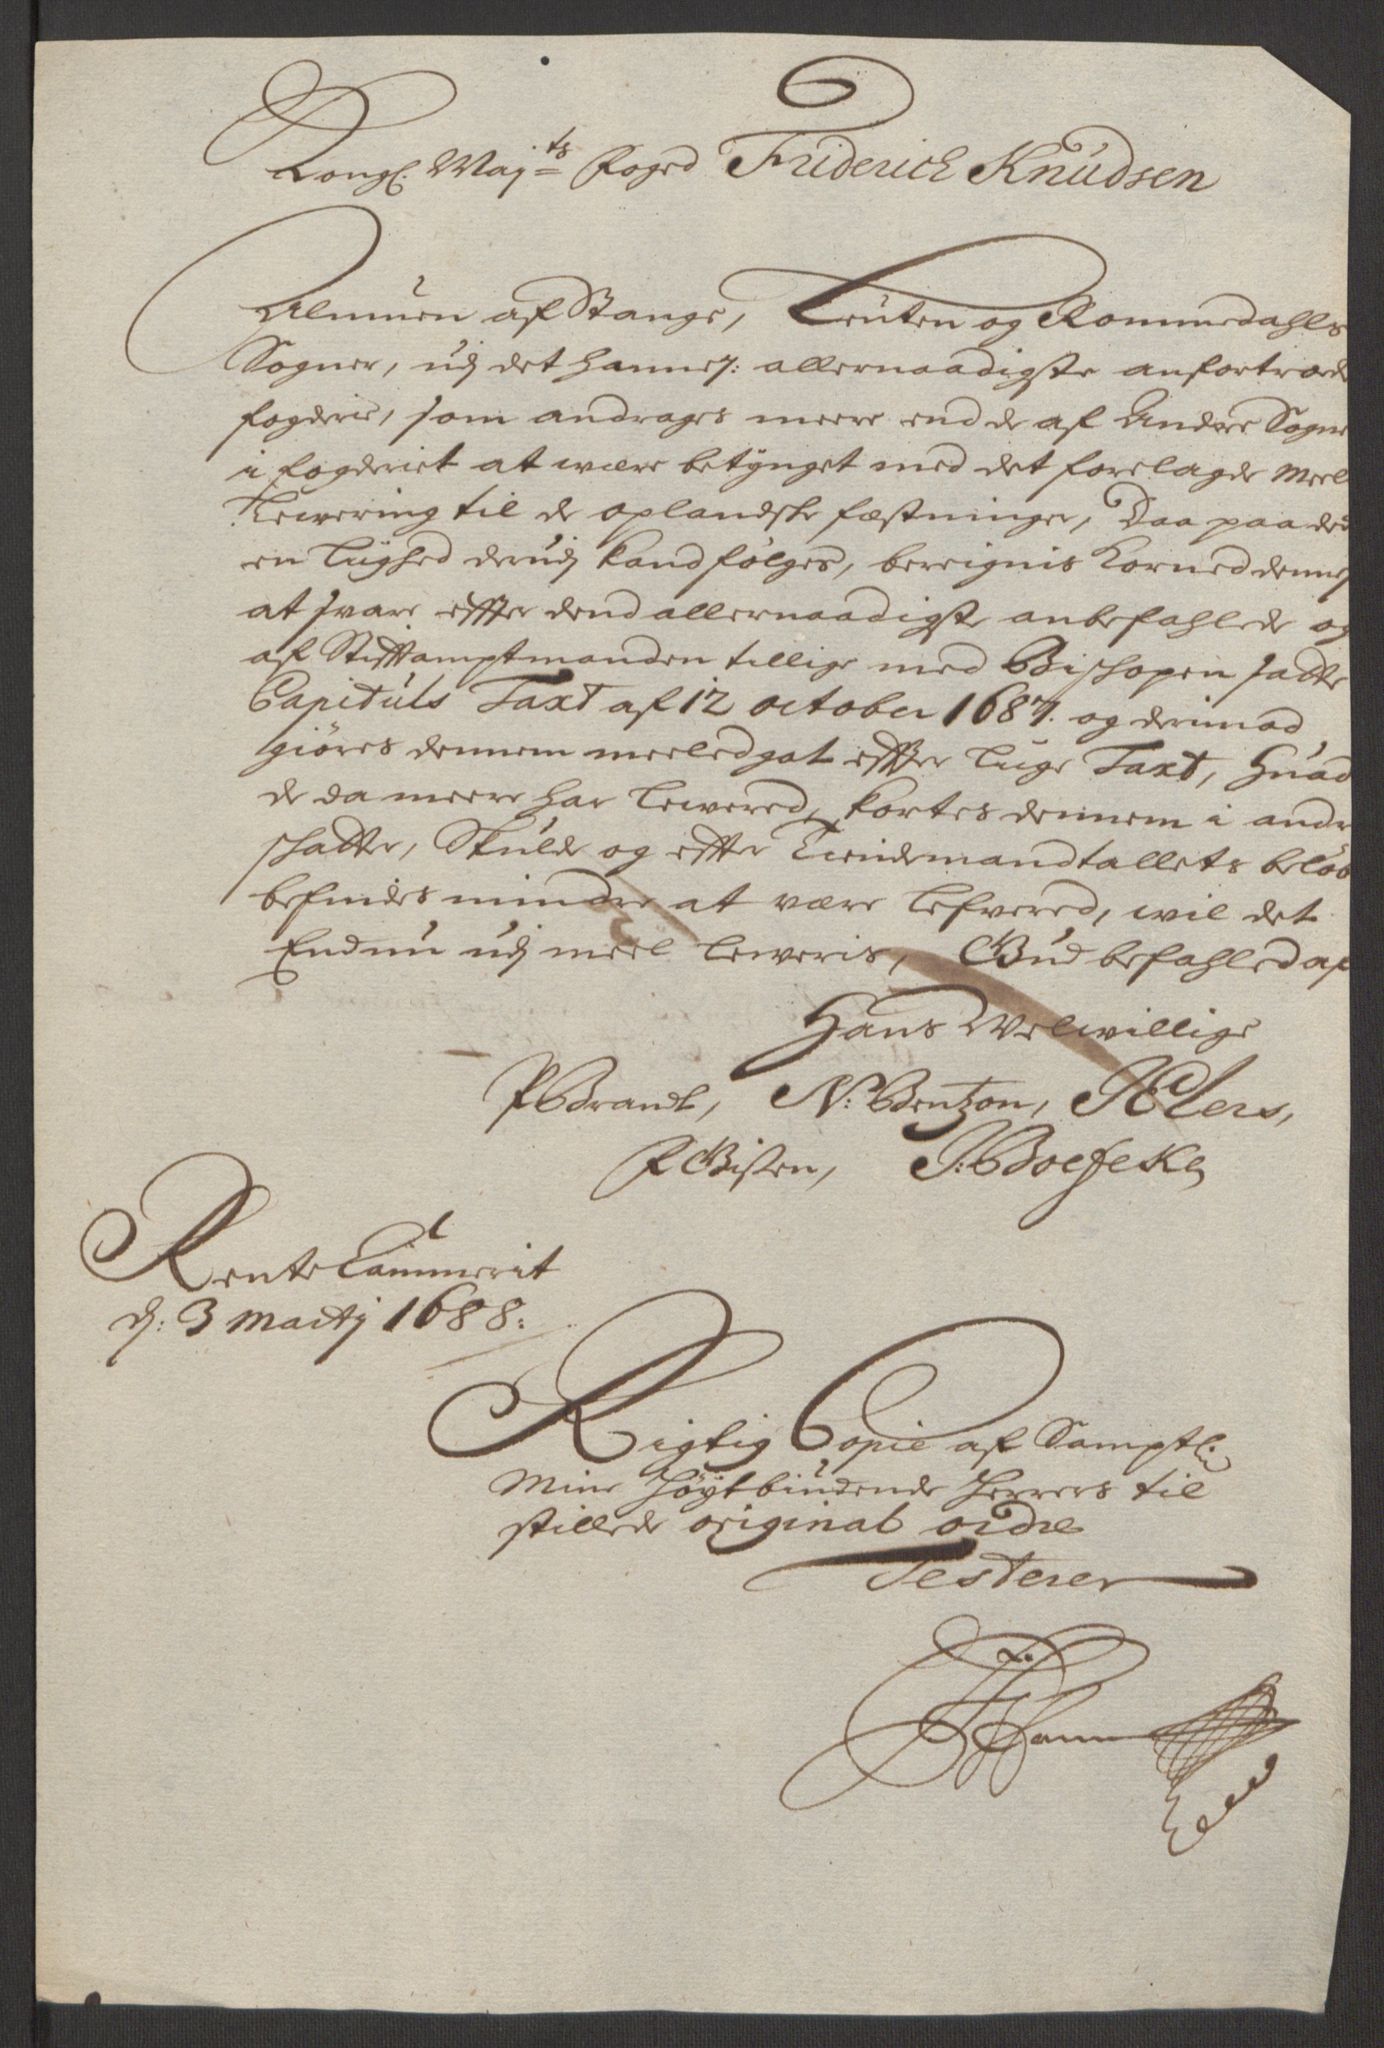 Kongl. Maj:ts Foged Friderich Knudsen
Almuen af Stange, Leuten og Rommedahls
Sogner, udj det hannem: allernaadigste anfortroede
fogderie, som andrages meere end de af Andere Sogne
i fogderiet at være betynget med det forelagde Meel
Lewering til de oplandske fæstninger, Daa paa det
en lighed derudj kand følges, bereignis kornned dennem
at svare effter dend allernaadigste anbefahlede og
af Stifftamptmanden tillige med Bischopen satte
Capituls Taxt af 12 october 1687. og derimod
giøres dennem meeled got effter lige Taxt, Huad
de da meere har lewered, kortes dennem i andre
schatter, Skulde og effter Tiendemandtallets beløb
befindes mindre at være lefvered, wil det
Endnu udj meel leweris, Gud befahled af
Hans Welwillige
P Brandt, N: Bentzon, H Elers,
P Gisen, J: Boefeke,
Rente Cammerit
d: 3 Martj 1688:
Rigtig Copie af Samptl:
Mine Høytbiudende Herrers til
stillede original ordre
Testerer